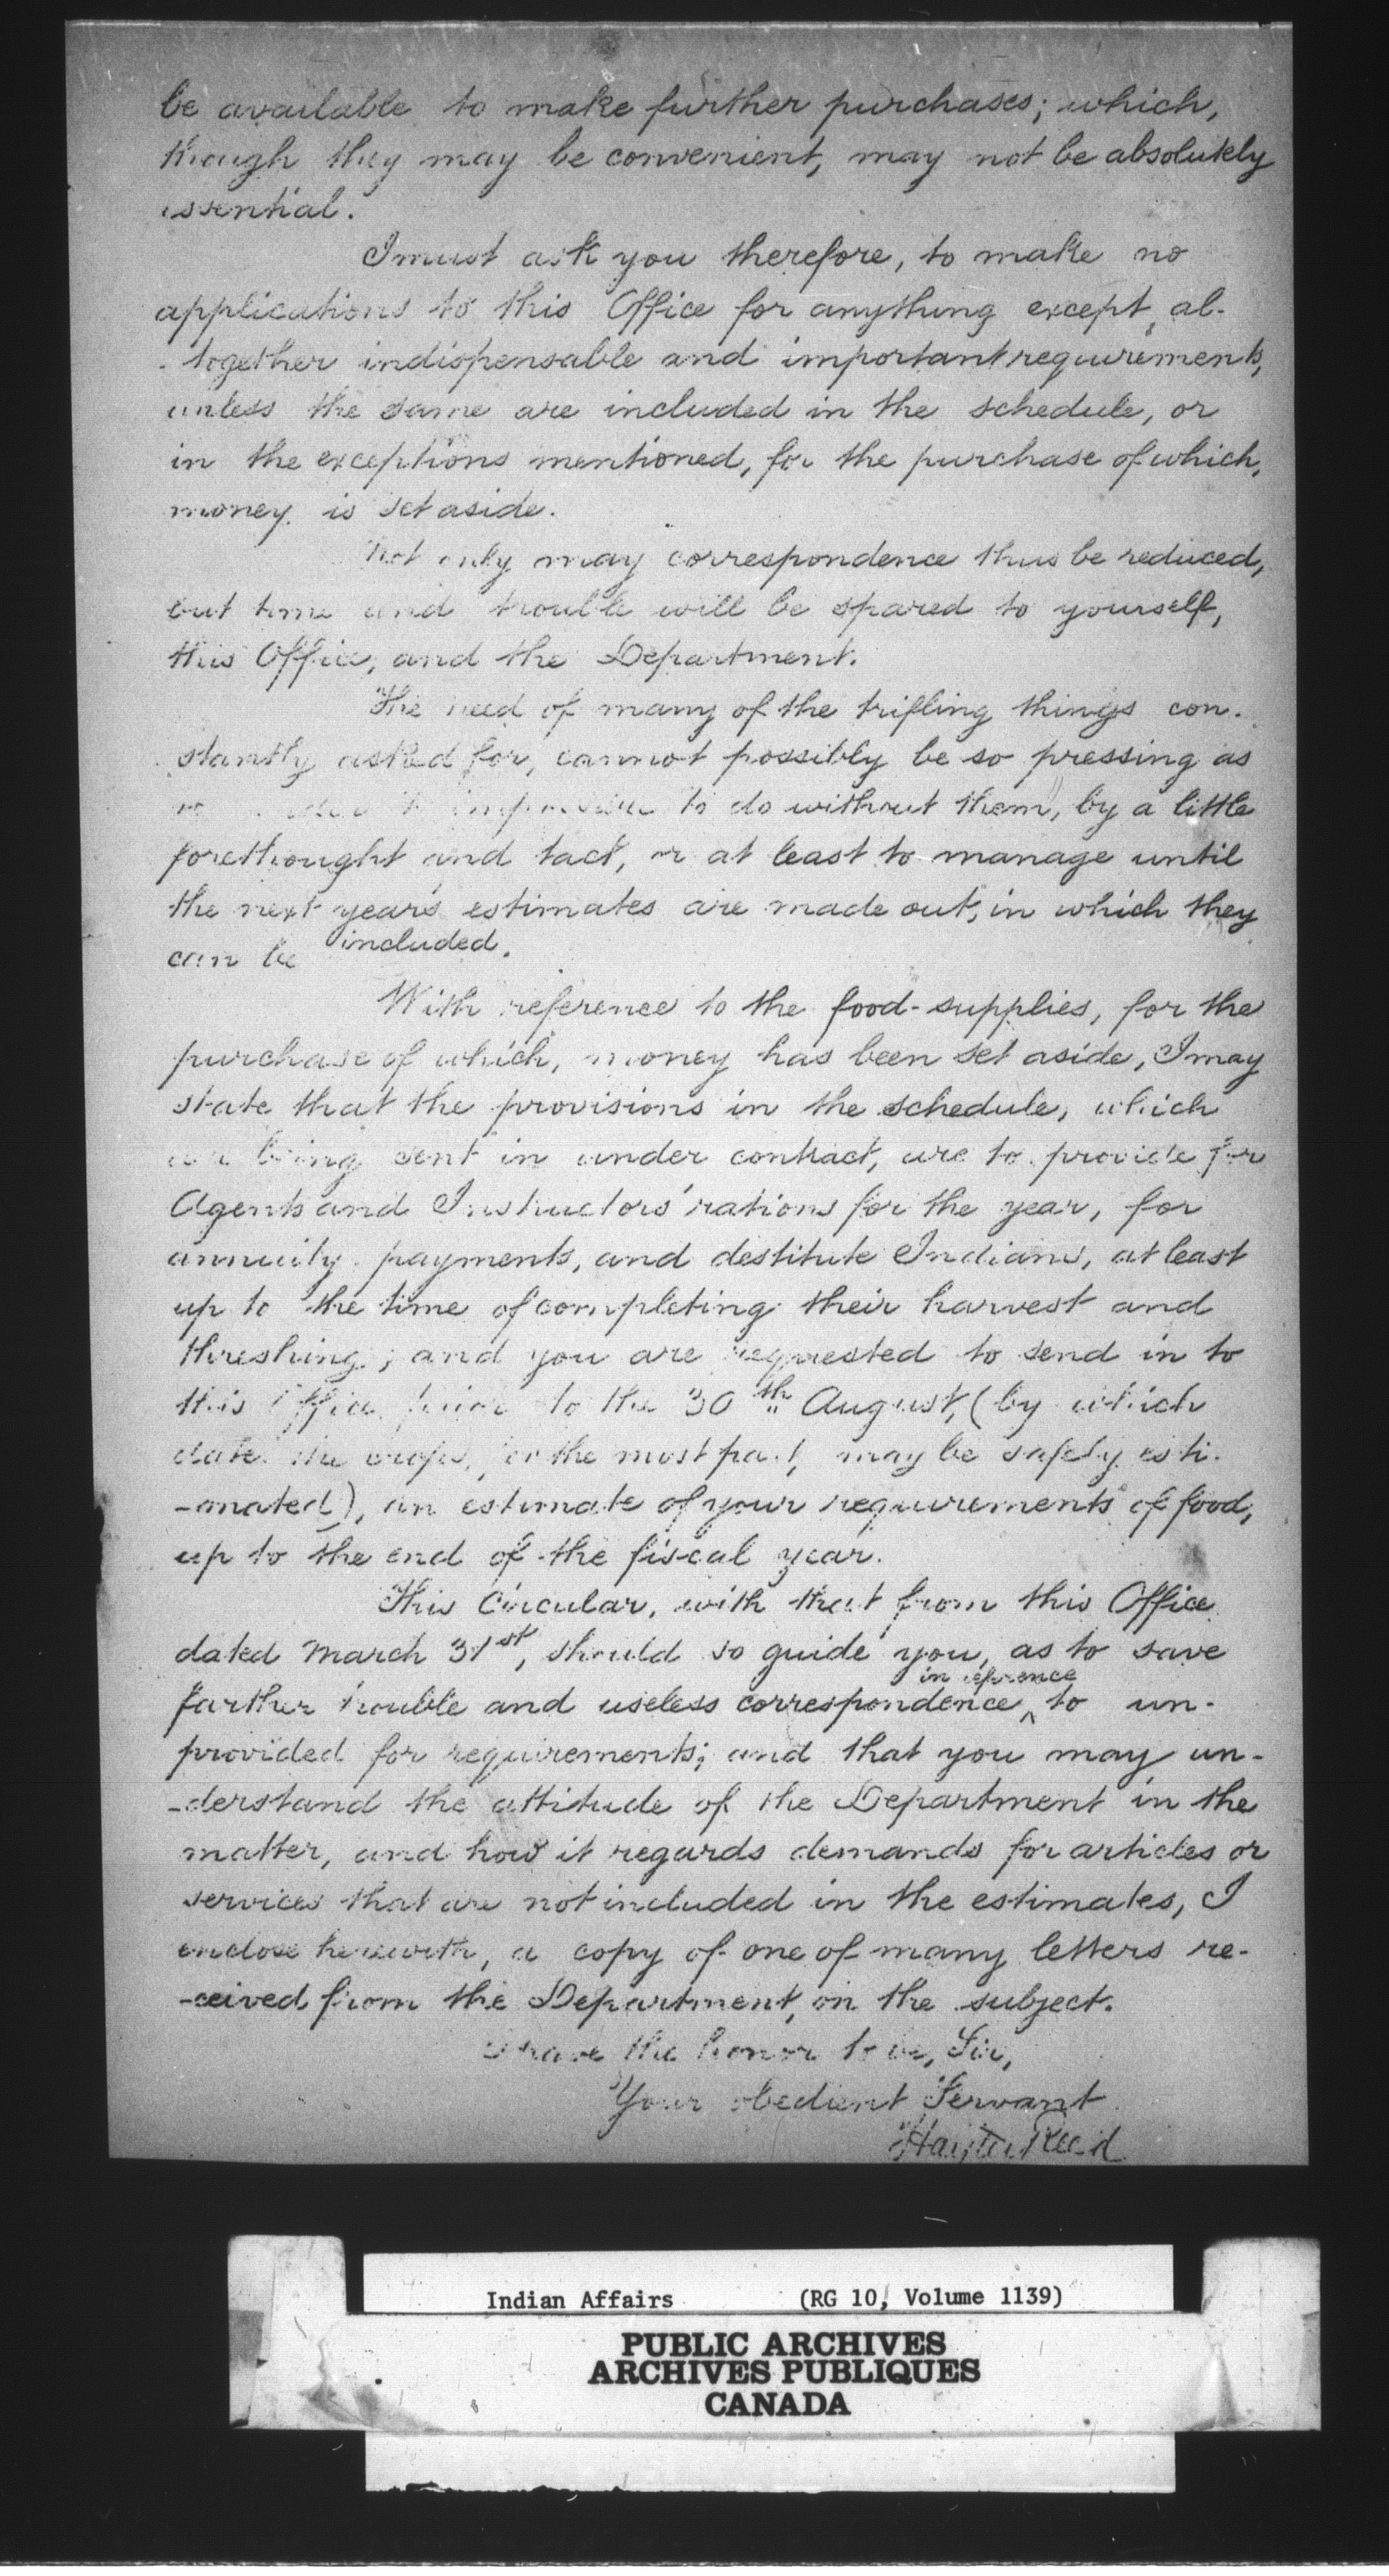 be available to make further purchases; which,
though they may be convenient, may not be absolutely
essential.
I must ask you therefore, to make no
applications to this Office for anything except, al-
-together indispensable and important requirements,
unless the same are included in the schedule, or
in the exceptions mentioned, for the purchase of which,
money is set aside.
Not only may correspondence thus be reduced,
but time and trouble will be spared to yourself,
this Office, and the Department.
The need of many of the trifling things con-
-stantly asked for, cannot possibly be so pressing as
to do without them, by a little
forethought and tact, or at least to manage until
the next year's estimates are made out, in which they
can be included.
With reference to the food-supplies, for the
purchase of which, money has been set aside, I may
state that the provisions in the schedule, which
are being sent in under contract, are to provide for
Agents and Instructors' rations for the year, for
annuity payments, and destitute Indians, at least
up to the time of completing their harvest and
threshing; and you are requested to send in to
this Office prior to the 30th August, (by which
date the crops, for the most part, may be safely esti-
-mated), an estimate of your requirements of food,
up to the end of the fiscal year.
This Circular, with that from this Office
dated March 31st, should so guide you, as to save
further trouble and useless correspondence in reference to un-
provided for requirements; and that you may un-
-derstand the attitude of the Department in the
matter, and how it regards demands for articles or
services that are not included in the estimates, I
enclose herewith, a copy of one of many letters re-
-ceived from the Department, on the subject.
I have the honor to be, Sir,
Your obedient Servant
Hayter Reed
Indian Affairs (RG 10, Volume 1139)
PUBLIC ARCHIVES
ARCHIVES PUBLIQUES
CANADA